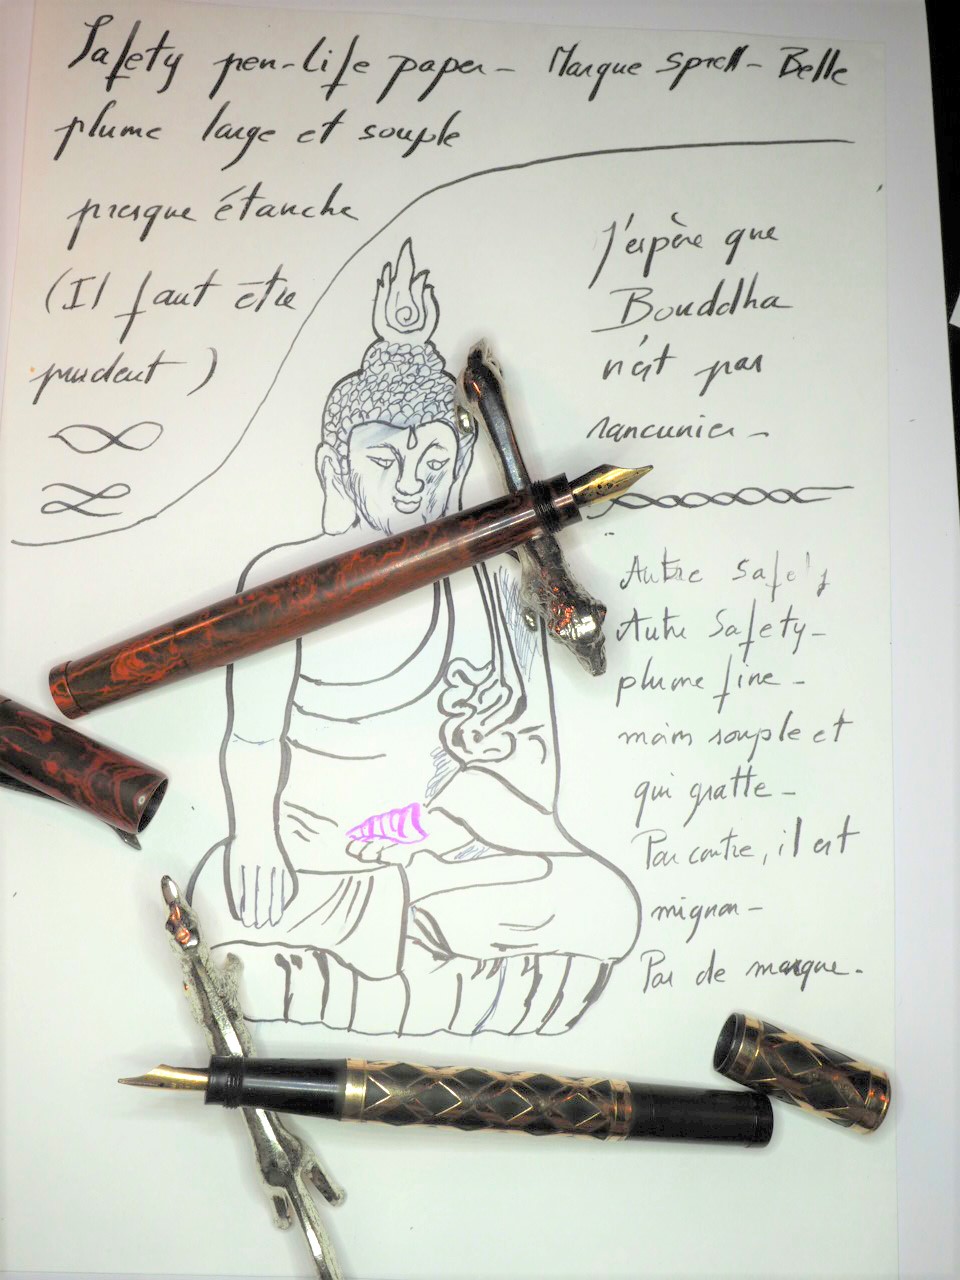 Safety pen-life paper - Marque Sprell - Belle
plume large et souple
presque étanche
(Il faut être
prudent)
J'espère que
Bouddha
n'est pas
rancunier -
Autre Safety
Autre Safety -
plume fine -
moins souple et
qui gratte -
Par contre, il est
mignon -
Pas de marque.